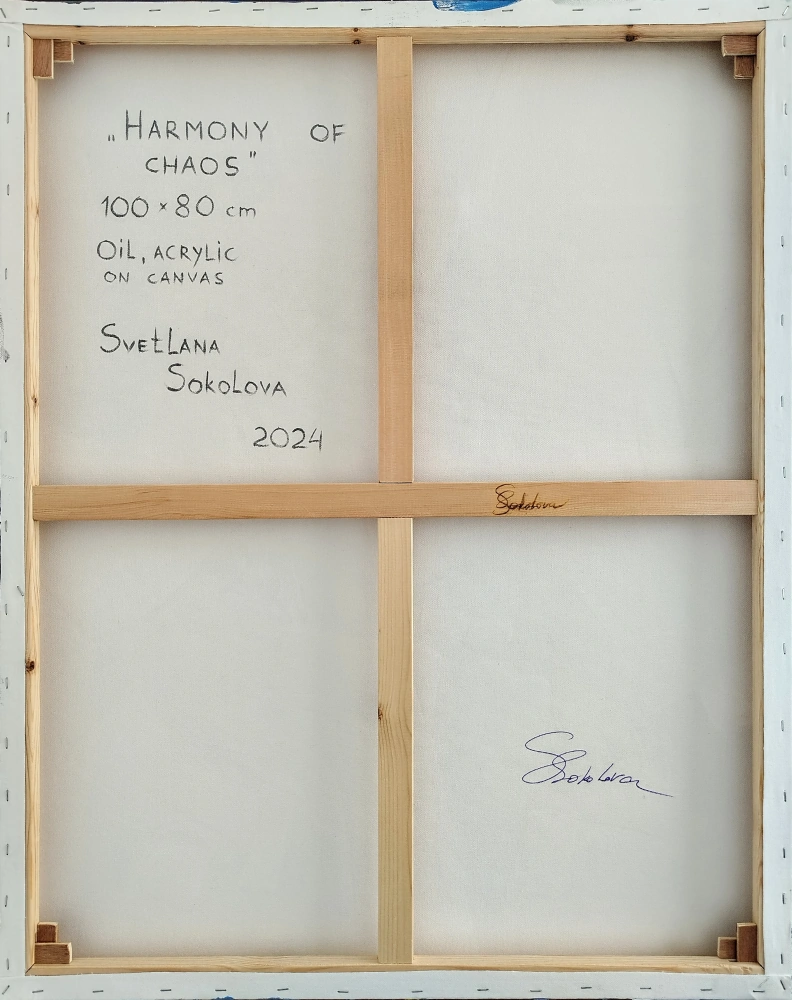 „HARMONY OF
CHAOS”
100 × 80 cm
OiL, ACRYLiC
ON CANVAS
SvetLANA
SokoLovA
2024
Sokolova
SSokolova